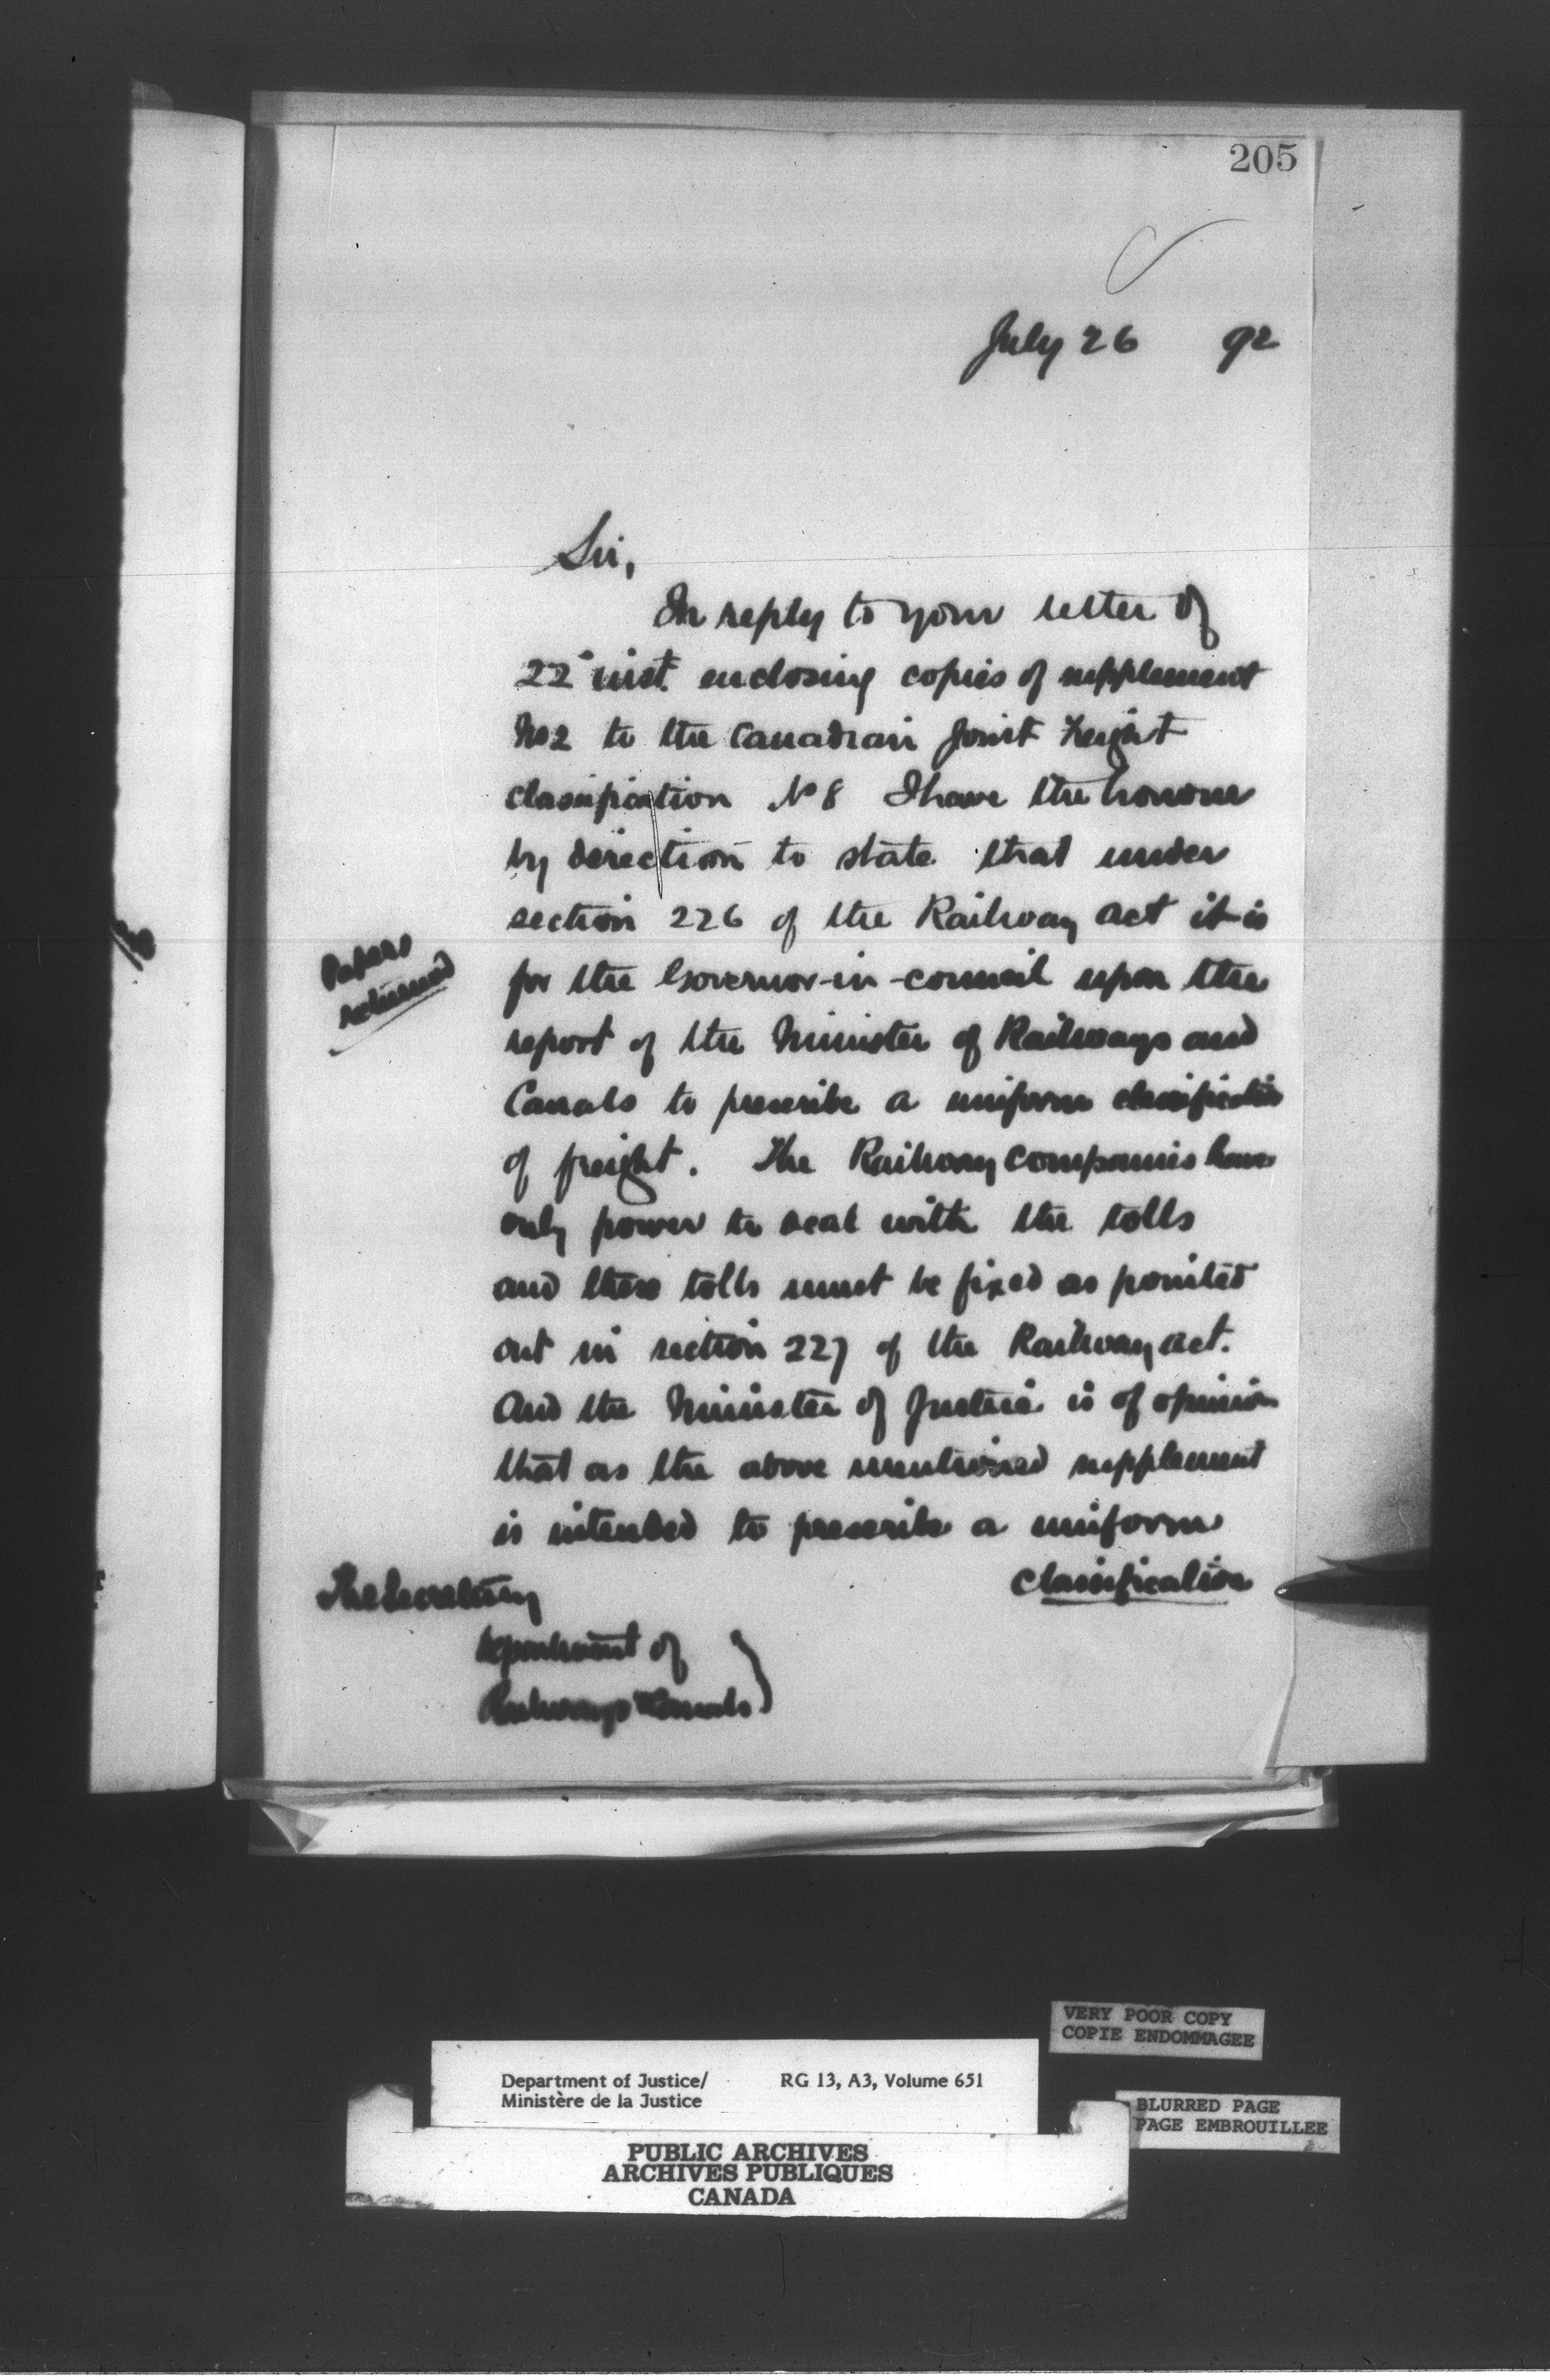 205
July 26 92
Sir,
In reply to your letter of
22 inst. enclosing copies of supplement
No 2 to the Canadian Joint Freight
classification No 8 I have the honour
by direction to state that under
section 226 of the Railway Act it is
for the Governor-in-Council upon the
report of the Minister of Railways and
Canals to prescribe a uniform classification
of freight. The Railway Companies have
only power to deal with the tolls
and these tolls must be fixed as pointed
out in section 227 of the Railway Act.
And the Minister of Justice is of opinion
that as the above mentioned supplement
is intended to prescribe a uniform
classification
Papers
returned
The Secretary
Department of
Railways & Canals
VERY POOR COPY
COPIE ENDOMMAGEE
Department of Justice/ RG 13, A3, Volume 651
Ministère de la Justice
BLURRED PAGE
PAGE EMBROUILLEE
PUBLIC ARCHIVES
ARCHIVES PUBLIQUES
CANADA